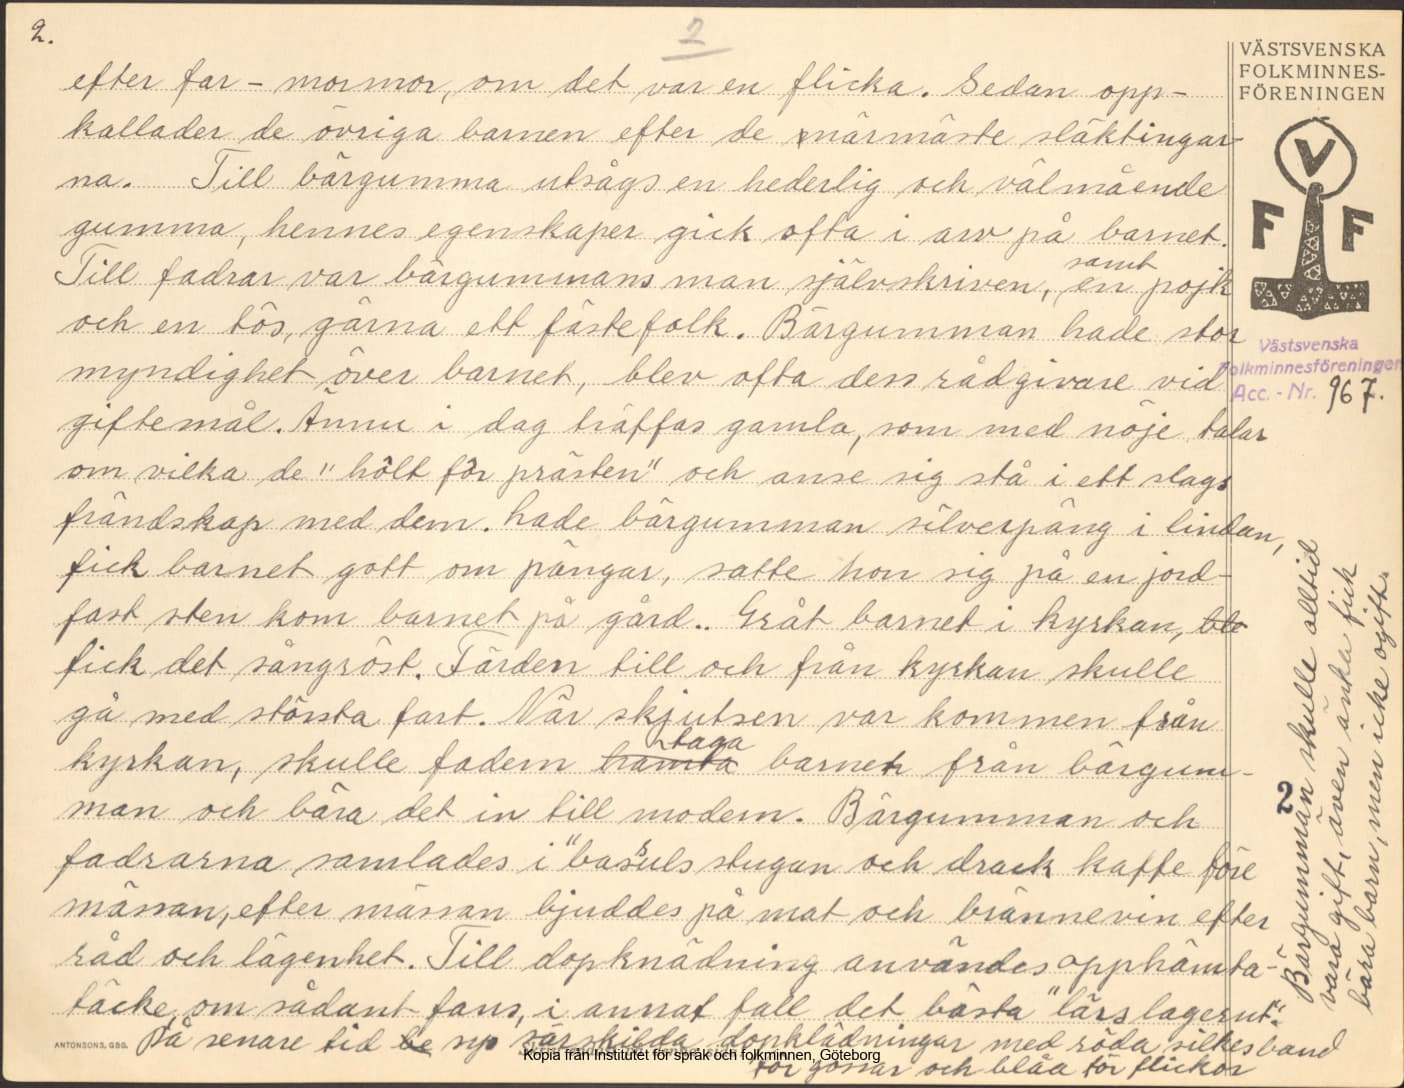 2.
2
VÄSTSVENSKA
FOLKMINNES-
FÖRENINGEN
V
F F
Västsvenska
Folkminnesföreningen
Acc. - Nr. 967.
efter far - mormor, om det var en flicka. Sedan opp-
kallader de övriga barnen efter de närmäste släktingar
na. Till bärgumma utsågs en hederlig och välmående
gumma, hennes egenskaper gick ofta i arv på barnet.
Till fadrar var bärgummans man självskriven, samt en pojk
och en tös, gärna ett fästefolk. Bärgumman hade stor
myndighet över barnet, blev ofta dess rådgivare vid
giftemål. Ännu i dag träffas gamla, som med nöje talar
om vilka de "hôlt fôr prästen" och anse sig stå i ett slags
frändskap med dem. hade bärgumman silverpäng i lindan,
fick barnet gott om pängar, satte hon sig på en jord-
fast sten kom barnet på gård.. Gråt barnet i kyrkan, ble
fick det sångröst. Färden till och från kyrkan skulle
gå med största fart. När skjutsen var kommen från
kyrkan, skulle fadern hämta taga barnet från bärgum-
man och bära det in till modern. Bärgumman och
fadrarna samlades i "basruls stugan och drack kaffe före
mässan, efter mässan bjuddes på mat och brännevin efter
råd och lägenhet. Till dopknädning användes opphämta-
täcke, om sådant fans, i annat fall det bästa "lärslagernt".
På senare tid be sys särskilda dopklädningar med röda silkesband
för gossar och blåa för flickor
Bärgumman skulle alltid
vara gift, även änka fick
bära barn, men icke ogift.
2
ANTONSONS, GBG.
Kopia från Institutet för språk och folkminnen, Göteborg